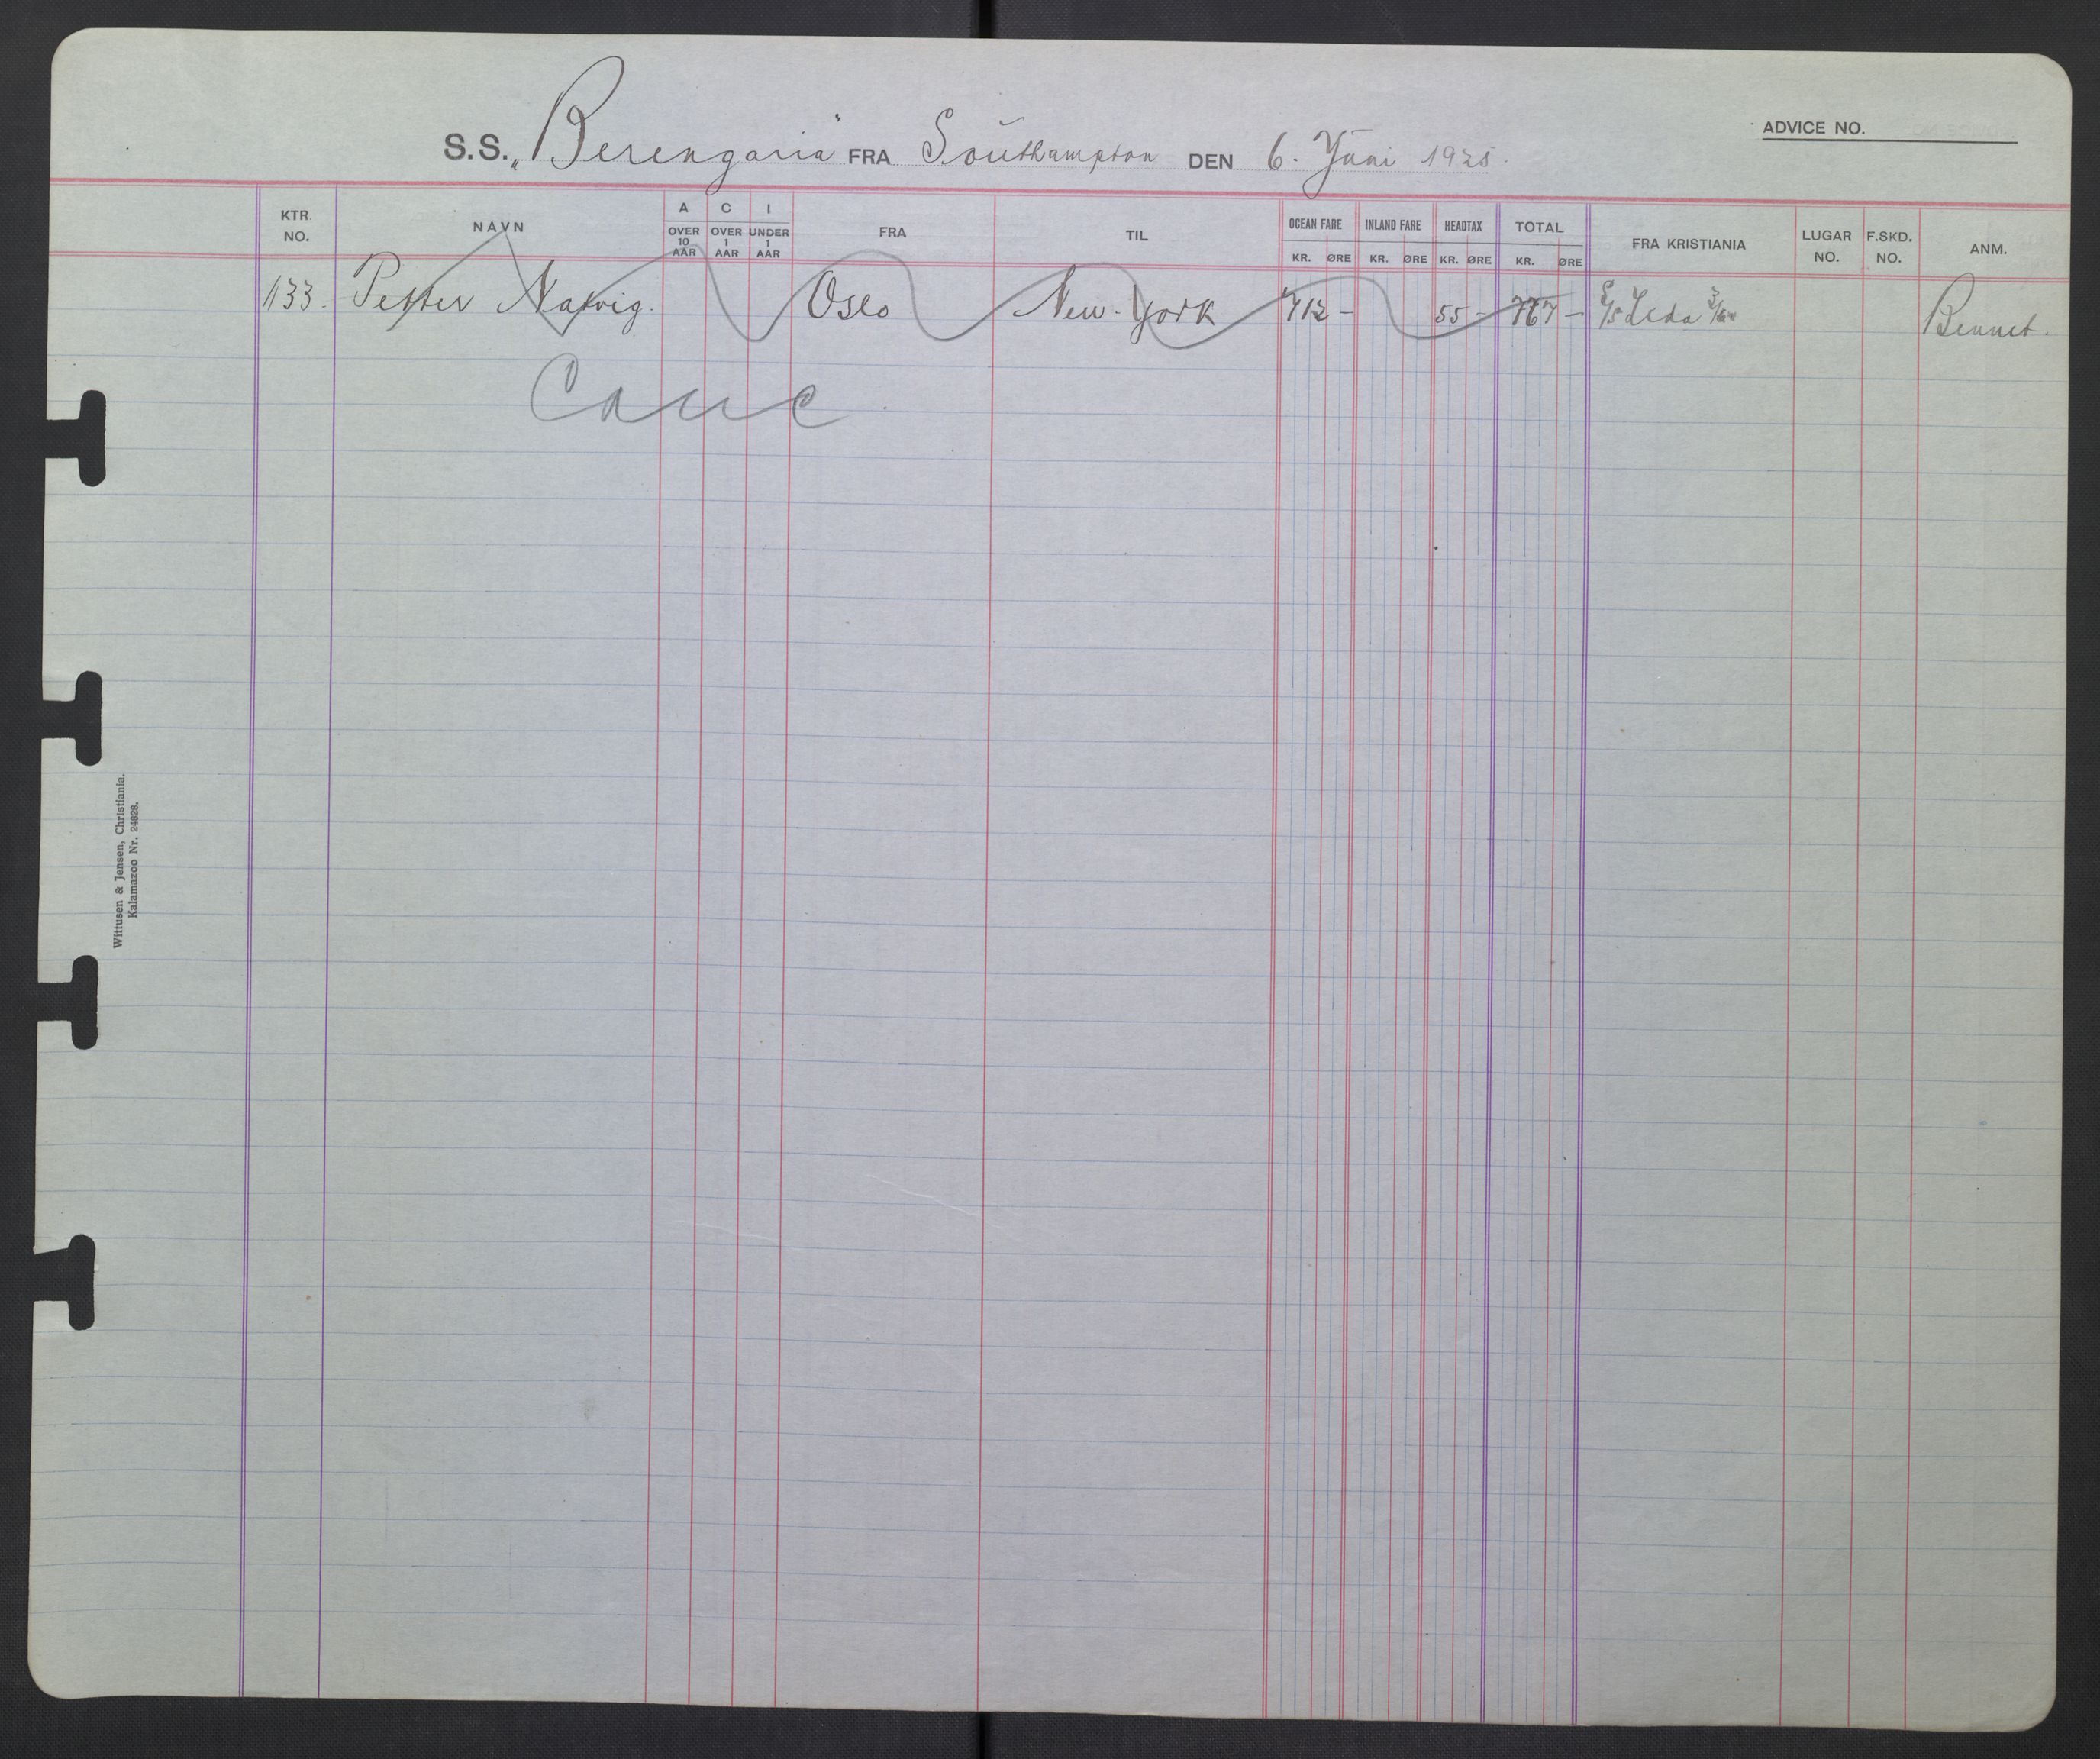 ADVICE NO.
S.S. „Berengaria" FRA Southampton DEN 6. Juni 1925.
KTR. NO. NAVN A OVER 10 AAR C OVER 1 AAR I UNDER 1 AAR FRA TIL OCEAN FARE KR. ØRE INLAND FARE KR. ØRE HEADTAX KR. ØRE TOTAL KR. ØRE FRA KRISTIANIA LUGAR NO. F.SKD. NO. ANM.
133. Petter Natvig. Oslo New-York 712 - 55 - 767 - S/S Leda Bennet.
Canc
Wittusen & Jensen, Christiania.
Kalamazoo Nr. 24828.